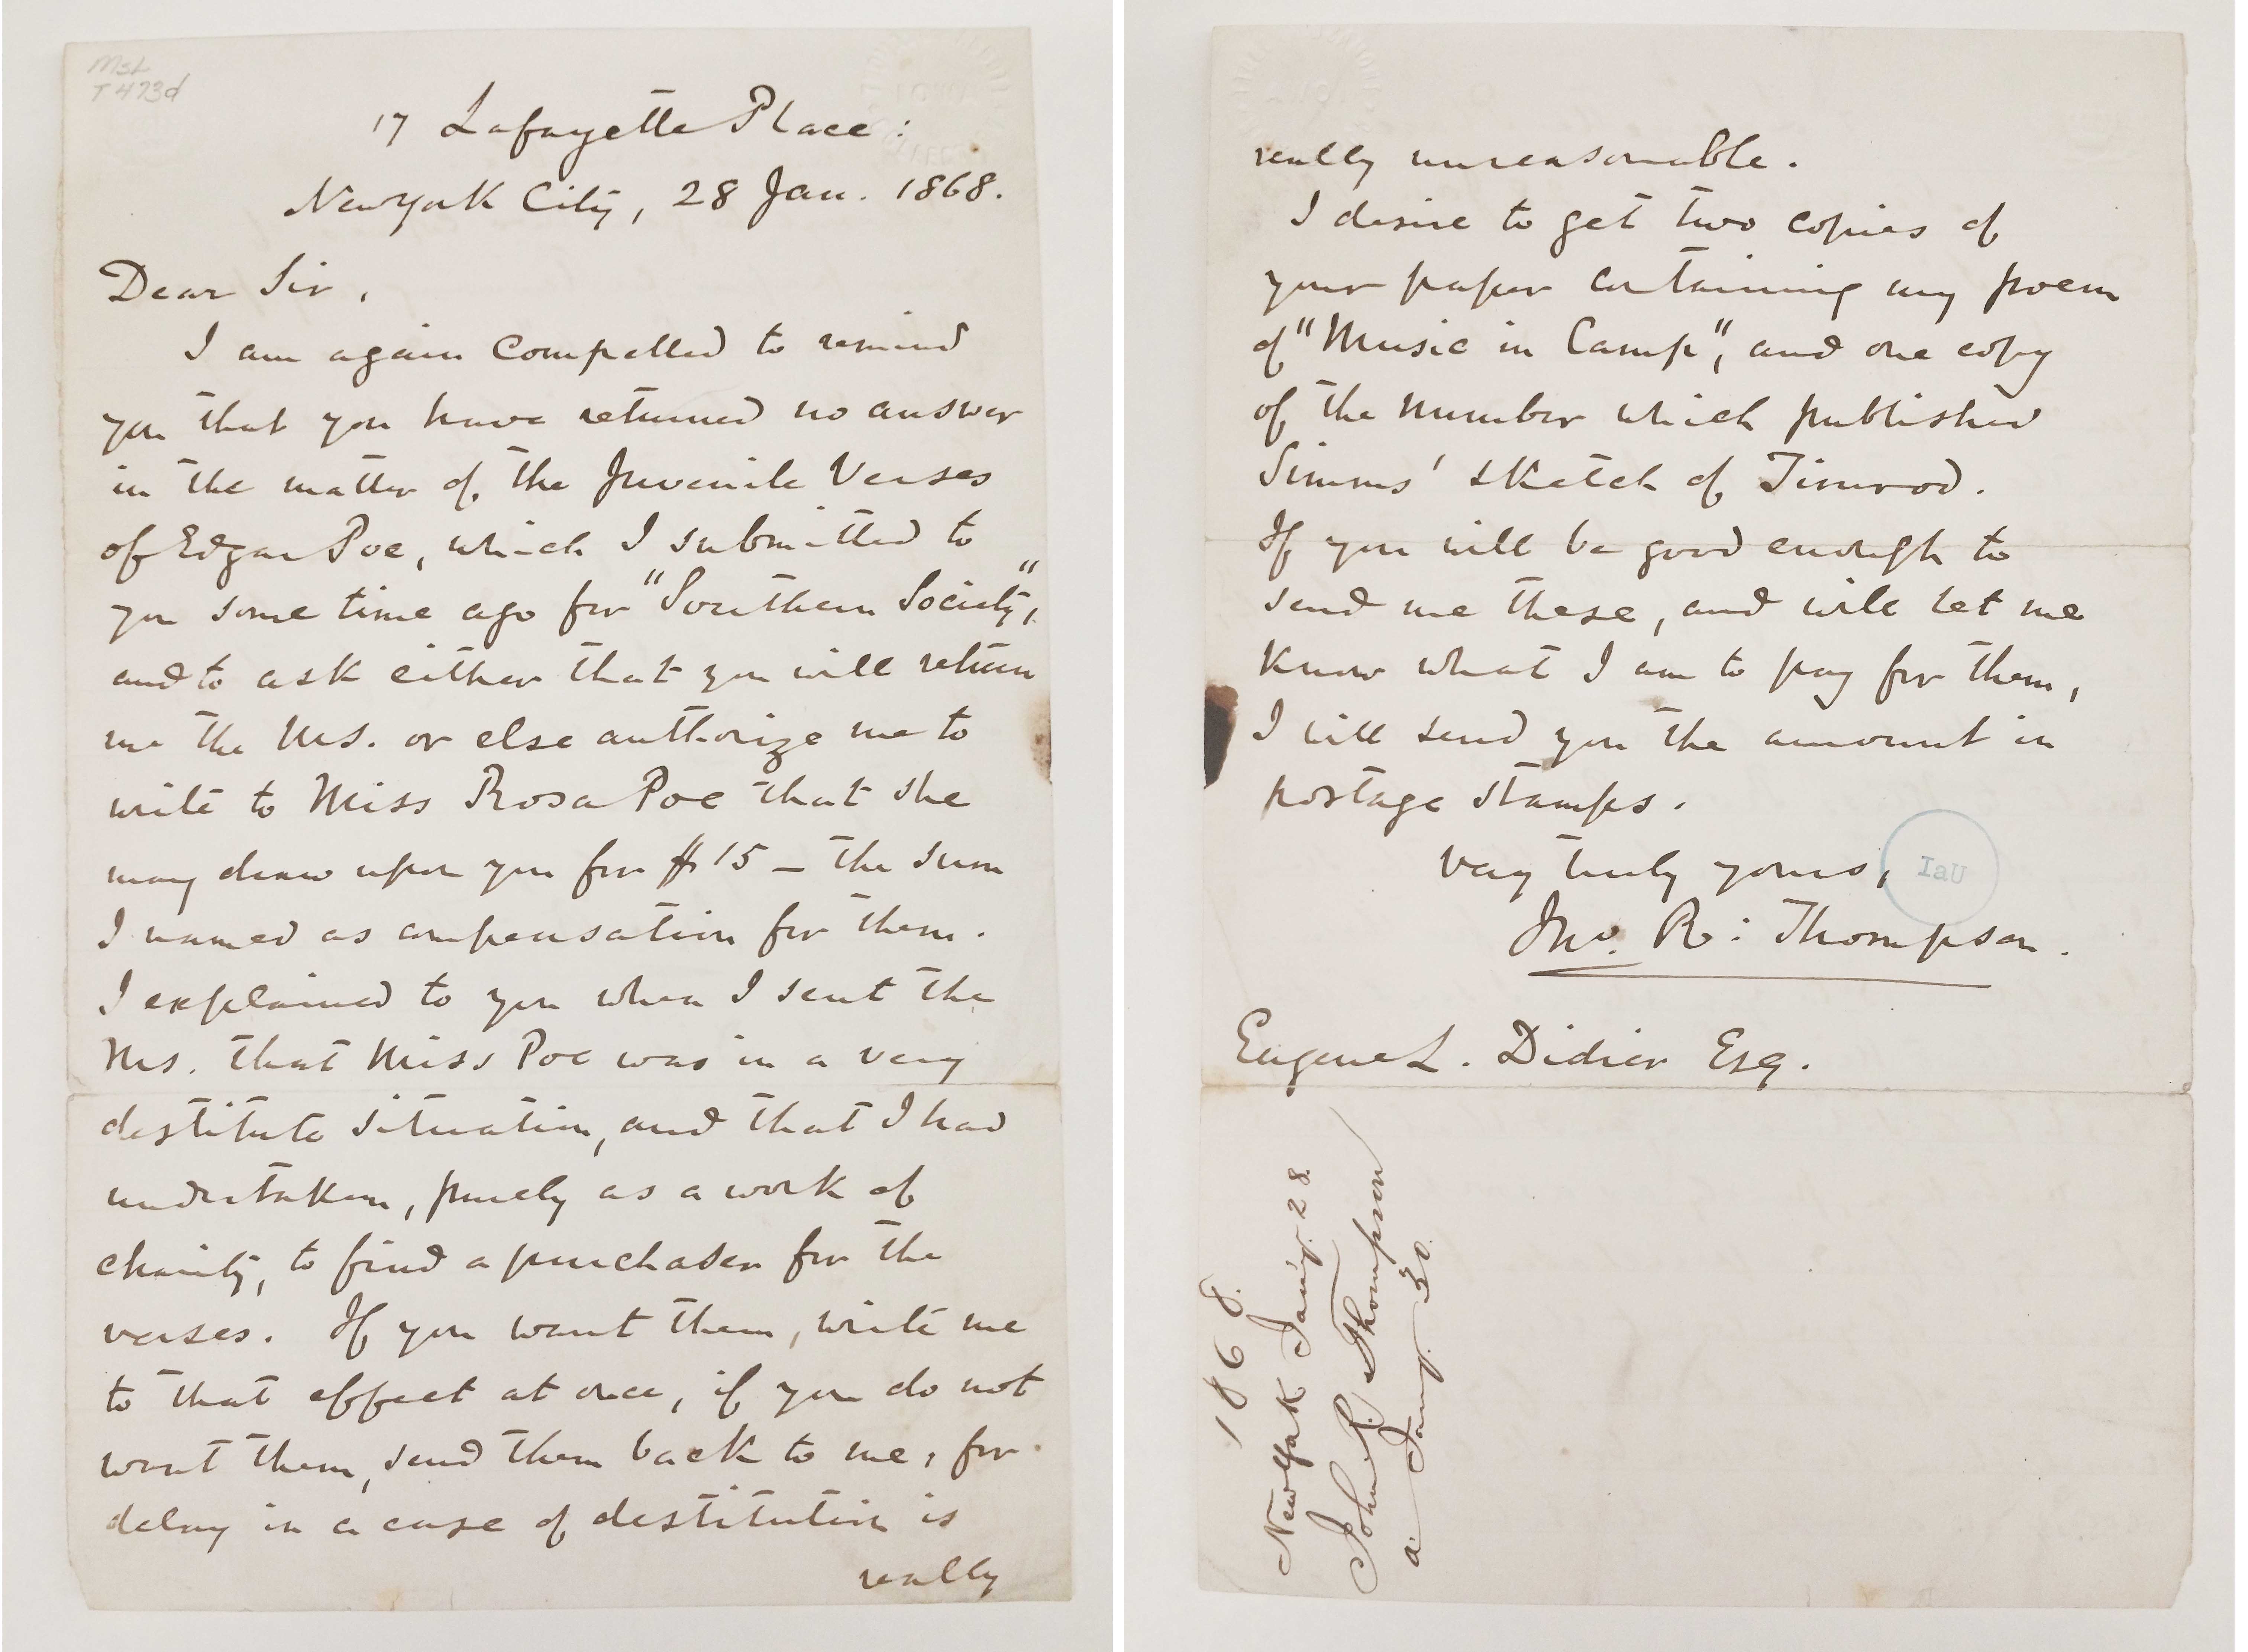 MsL
T473d
17 Lafayette Place:
New York City, 28 Jan. 1868.
Dear Sir,
I am again compelled to remind
you that you have returned no answer
in the matter of the Juvenile Verses
of Edgar Poe, which I submitted to
you some time ago for "Southern Society",
and to ask either that you will return
me the MS. or else authorize me to
write to Miss Rosa Poe that she
may draw upon you for $15 – the sum
I named as compensation for them.
I explained to you when I sent the
Ms. that Miss Poe was in a very
destitute situation, and that I had
undertaken, purely as a work of
charity, to find a purchaser for the
verses. If you want them, write me
to that effect at once, if you do not
want them, send them back to me, for
delay in a case of destitution is
really
really unreasonable.
I desire to get two copies of
your paper containing my poem
of "Music in Camp", and one copy
of the number which published
Simms' sketch of Timrod.
If you will be good enough to
send me these, and will let me
know what I am to pay for them,
I will send you the amount in
postage stamps.
Very truly yours,
IaU
Jno. R: Thompson.
Eugene L. Didier Esq.
1868.
New York Jan'y. 28.
John R. Thompson
a. Jany. 30.